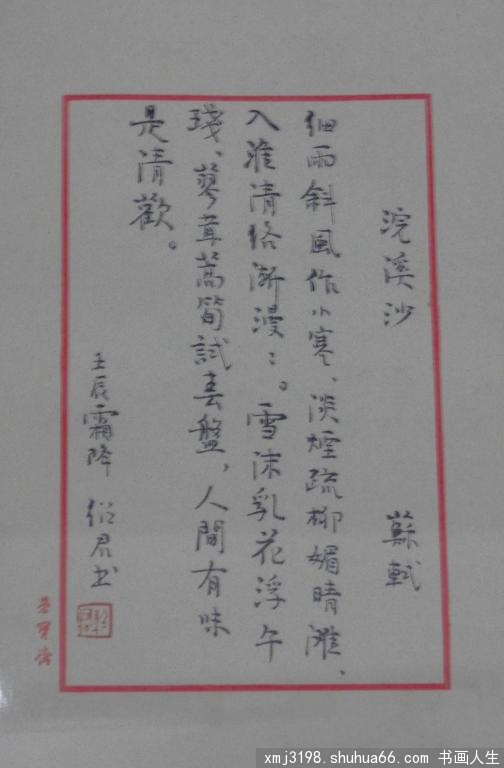 浣溪沙 蘇軾
细雨斜風作小寒、淡煙疏柳媚晴灘、
入淮清洛漸漫〻。雪沫乳花浮午
琖、蓼茸蒿筍試春盤，人間有味
是清歡。
壬辰霜降 君书
榮寶齋
xmj3198.shuhua66.com 书画人生